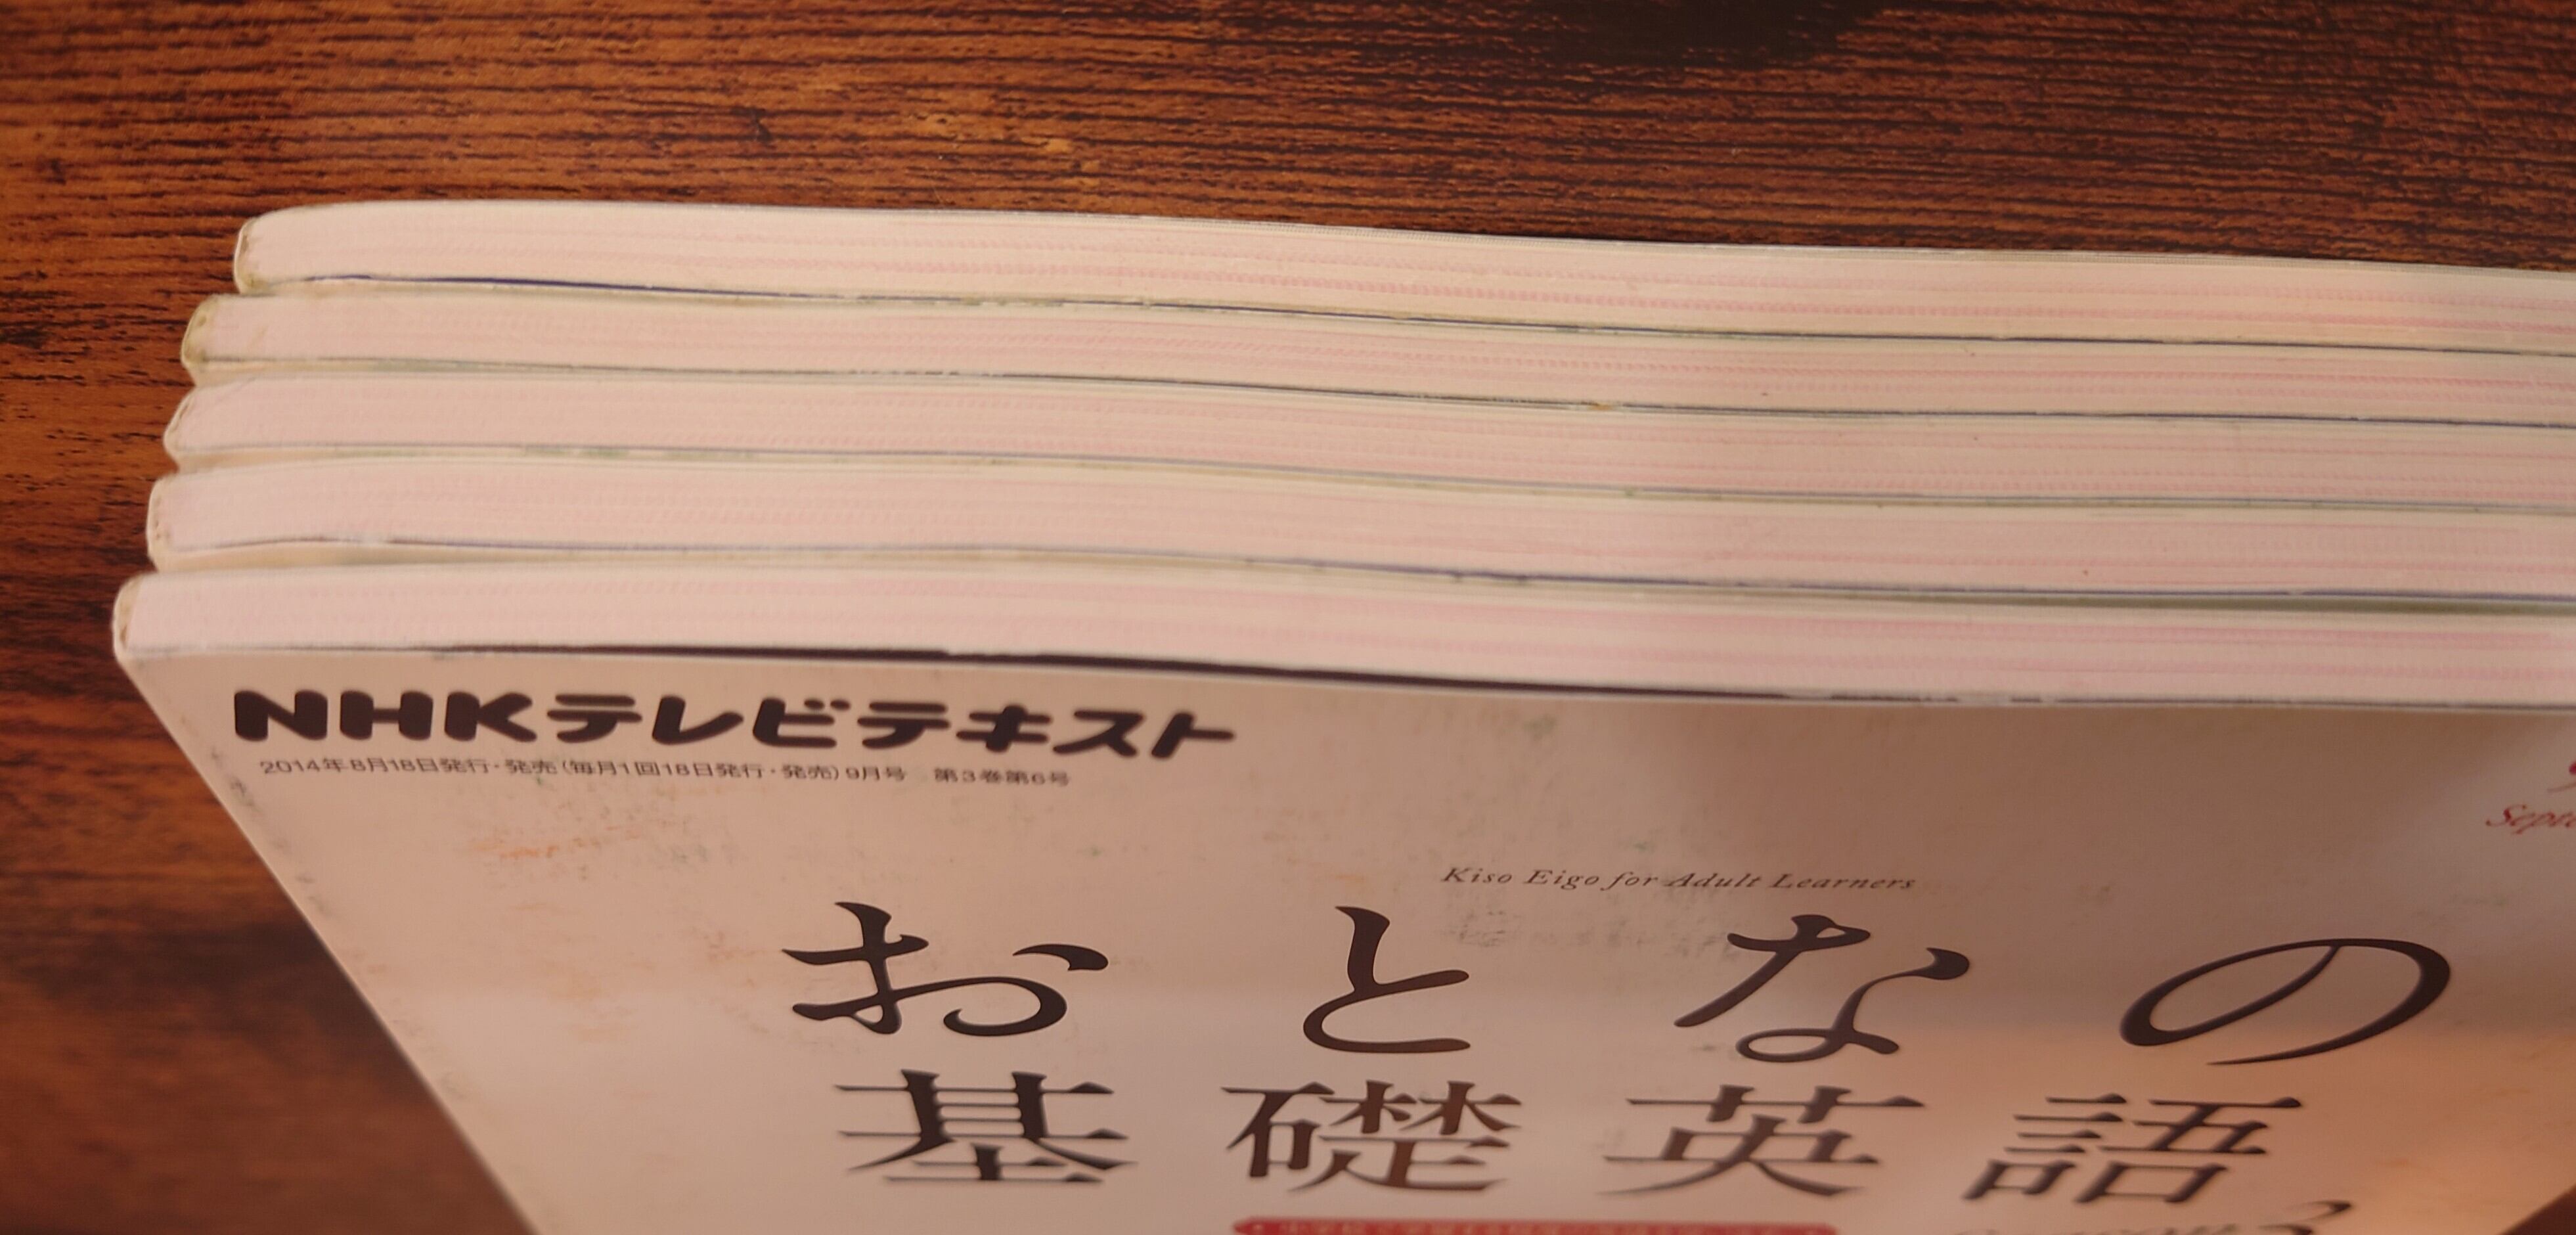 NHKテレビテキスト
2014年8月18日発行・発売（毎月1回18日発行・発売）9月号　第3巻第6号
Kiso Eigo for Adult Learners
おとなの
基礎英語